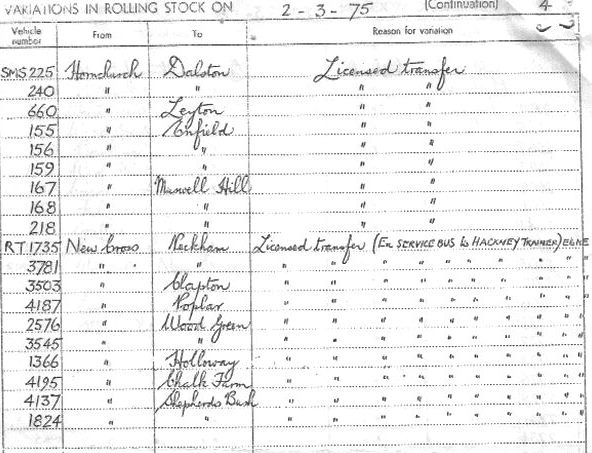 VARIATIONS IN ROLLING STOCK ON 2-3-75 (Continuation) 4
Vehicle number From To Reason for variation
SMS 225 Hornchurch Dalston Licensed transfer
240 " " " "
660 " Leyton " "
155 " Enfield " "
156 " " " "
159 " " " "
167 " Muswell Hill " "
168 " " " "
218 " " " "
RT 1735 New Cross Peckham Licensed transfer (Ex SERVICE BUS to HACKNEY TRAINER)
3781 " " " " " " " " " "
3503 " Clapton " " " " " " " "
4187 " Poplar " " " " " " " "
2576 " Wood Green " " " " " " " "
3545 " " " " " " " " " "
1366 " Holloway " " " " " " " "
4195 " Chalk Farm " " " " " " " "
4137 " Shepherds Bush " " " " " " " "
1824 " " " " " " " " " "